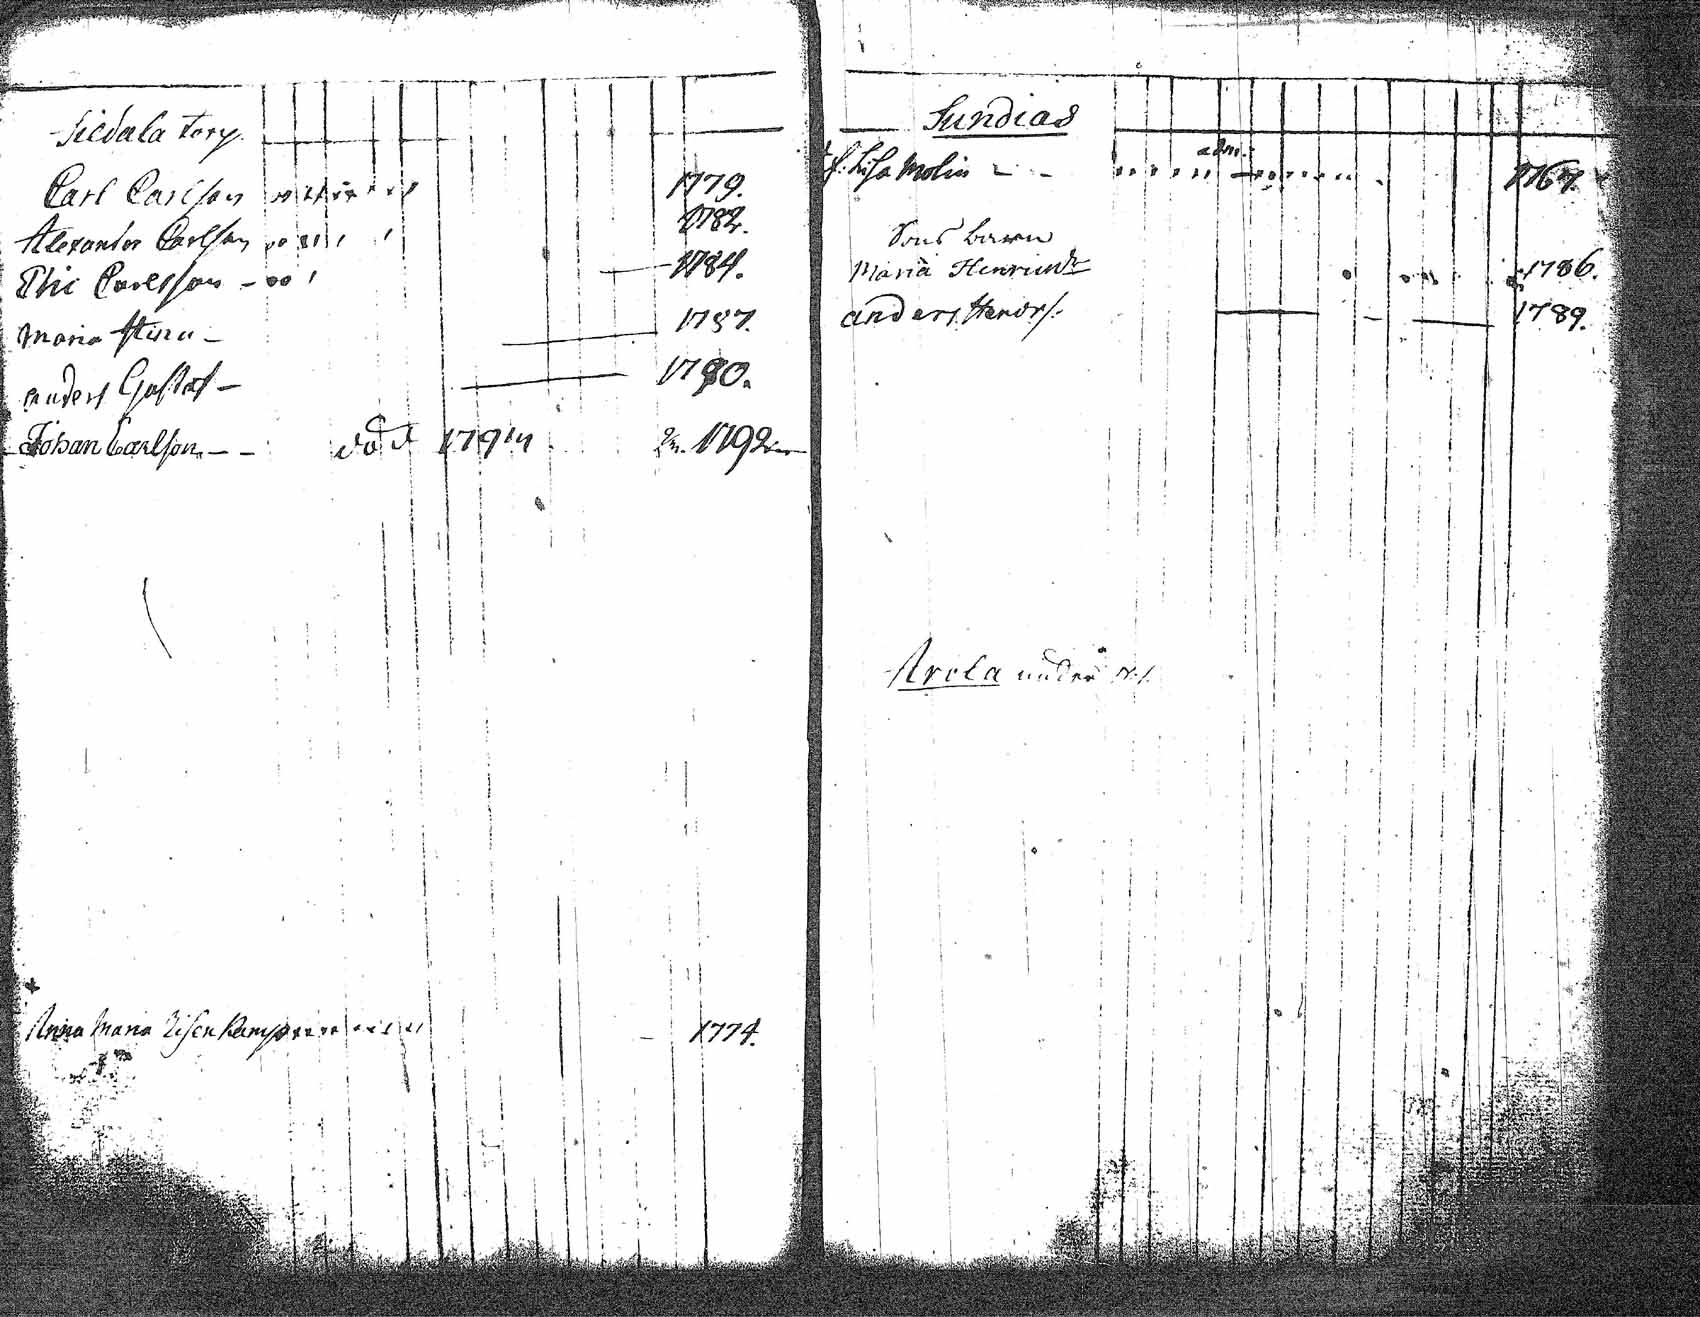 Siedala torp.
Carl Carlsson 1779.
Alexander Carlsson 1782.
Eric Carlsson - 1784.
Maria Stina - 1787.
Anders Gustaf - 1790.
Johan Carlson - - död 1791 1792
Anna Maria 1774.
Sundias
Lisa Molin - - adm. 1767.
Sons barn
Maria Henricsdr 1786.
Anders Henrs. 1789.
Arola under